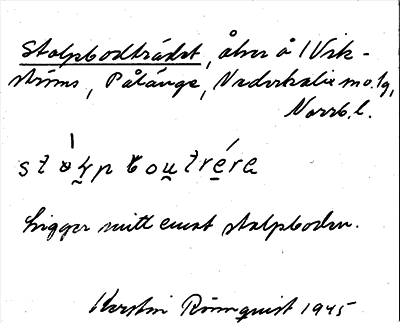 Stolpbodträdet, åker å 1 Vik-
ströms, Pålänge, Nederkalix sn o. tg,
Norrb. l.
Ligger mitt emot stolpboden.
Kerstin Rönnquist 1945